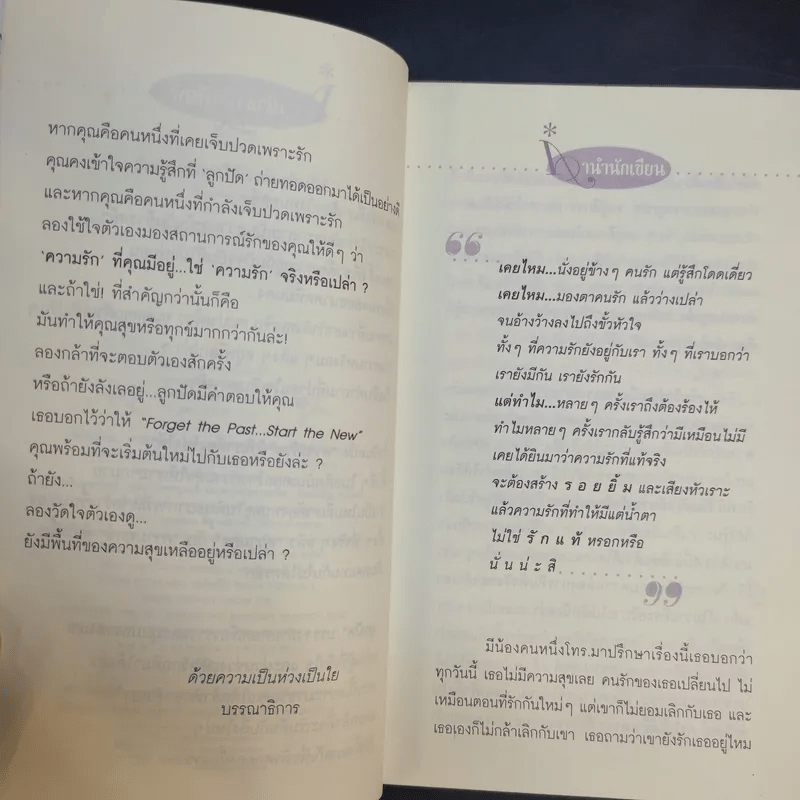 หากคุณคือคนหนึ่งที่เคยเจ็บปวดเพราะรัก
คุณคงเข้าใจความรู้สึกที่ ‘ลูกปัด’ ถ่ายทอดออกมาได้เป็นอย่างดี
และหากคุณคือคนหนึ่งที่กำลังเจ็บปวดเพราะรัก
ลองใช้ใจตัวเองมองสถานการณ์รักของคุณให้ดีๆ ว่า
‘ความรัก’ ที่คุณมีอยู่...ใช่ ‘ความรัก’ จริงหรือเปล่า ?
และถ้าใช่! ที่สำคัญกว่านั้นก็คือ
มันทำให้คุณสุขหรือทุกข์มากกว่ากันล่ะ!
ลองกล้าที่จะตอบตัวเองสักครั้ง
หรือถ้ายังลังเลอยู่...ลูกปัดมีคำตอบให้คุณ
เธอบอกไว้ว่าให้ “Forget the Past...Start the New”
คุณพร้อมที่จะเริ่มต้นใหม่ไปกับเธอหรือยังล่ะ ?
ถ้ายัง...
ลองวัดใจตัวเองดู...
ยังมีพื้นที่ของความสุขเหลืออยู่หรือเปล่า ?
ด้วยความเป็นห่วงเป็นใย
บรรณาธิการ
คำนำนักเขียน
“
เคยไหม...นั่งอยู่ข้างๆ คนรัก แต่รู้สึกโดดเดี่ยว
เคยไหม...มองตาคนรัก แล้วว่างเปล่า
จนอ้างว้างลงไปถึงขั้วหัวใจ
ทั้งๆ ที่ความรักยังอยู่กับเรา ทั้งๆ ที่เราบอกว่า
เรายังมีกัน เรายังรักกัน
แต่ทำไม...หลายๆ ครั้งเราถึงต้องร้องไห้
ทำไมหลายๆ ครั้งเรากลับรู้สึกว่ามีเหมือนไม่มี
เคยได้ยินมาว่าความรักที่แท้จริง
จะต้องสร้าง ร อ ย ยิ้ ม และเสียงหัวเราะ
แล้วความรักที่ทำให้มีแต่น้ำตา
ไม่ใช่ รั ก แ ท้ หรอกหรือ
นั่ น น่ ะ สิ
”
มีน้องคนหนึ่งโทร.มาปรึกษาเรื่องนี้เธอบอกว่า
ทุกวันนี้ เธอไม่มีความสุขเลย คนรักของเธอเปลี่ยนไป ไม่
เหมือนตอนที่รักกันใหม่ๆ แต่เขาก็ไม่ยอมเลิกกับเธอ และ
เธอเองก็ไม่กล้าเลิกกับเขา เธอถามว่าเขายังรักเธออยู่ไหม